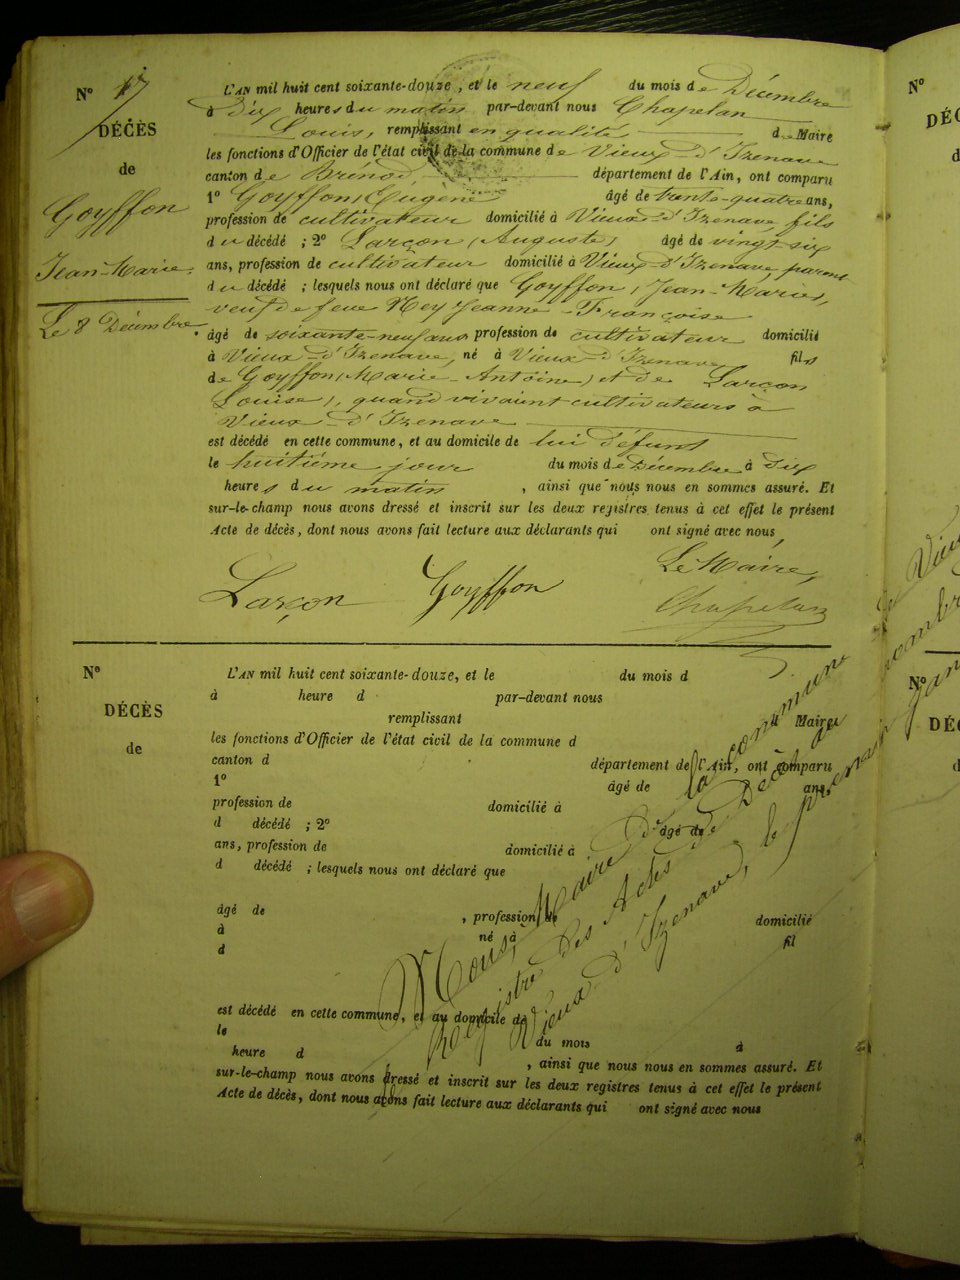 N° 17
DÉCÈS
de
Goyffon
Jean-Marie.
Le 8 Décembre.
L'AN mil huit cent soixante-douze, et le neuf du mois de Décembre
à dix heures du matin par-devant nous Chapelan
Louis, remplissant en qualité de Maire
les fonctions d'Officier de l'état civil de la commune de Vieux-d'Izenave
canton de Brénod département de l'Ain, ont comparu
1° Goyffon, Eugène âgé de trente-quatre ans,
profession de cultivateur domicilié à Vieux-d'Izenave, fils
du décédé ; 2° Larçon, (Auguste) âgé de vingt six
ans, profession de cultivateur domicilié à Vieux-d'Izenave, parent
du décédé ; lesquels nous ont déclaré que Goyffon, Jean-Marie,
veuf de feue Ney Jeanne-Françoise
âgé de soixante-neuf ans profession de cultivateur domicilié
à Vieux-d'Izenave, né à Vieux d'Izenave fils
de Goyffon (Marie-Antoine) et de Larçon
Louise), quand vivaient cultivateurs à
Vieux-d'Izenave
est décédé en cette commune, et au domicile de lui défunt
le huitième jour du mois de Décembre à dix
heures du matin , ainsi que nous nous en sommes assuré. Et
sur-le-champ nous avons dressé et inscrit sur les deux registres tenus à cet effet le présent
Acte de décès, dont nous avons fait lecture aux déclarants qui ont signé avec nous
Le Maire,
Larçon Goyffon Chapelan
N°
DÉCÈS
de
L'AN mil huit cent soixante-douze, et le du mois d
à heure d par-devant nous
remplissant d Maire
les fonctions d'Officier de l'état civil de la commune d
canton d département de l'Ain, ont comparu
1° âgé de ans,
profession de domicilié à
d décédé ; 2° âgé de
ans, profession de domicilié à
d décédé ; lesquels nous ont déclaré que
âgé de , profession de domicilié
à né à fil
d
est décédé en cette commune, et au domicile de
le du mois d
heure d , ainsi que nous nous en sommes assuré. Et
sur-le-champ nous avons dressé et inscrit sur les deux registres tenus à cet effet le présent
Acte de décès, dont nous avons fait lecture aux déclarants qui ont signé avec nous
Nous, Maire de la commune
registre des Actes de Décès
Vieux-d'Izenave, le
N°
DÉC
d
N°
DÉ
d